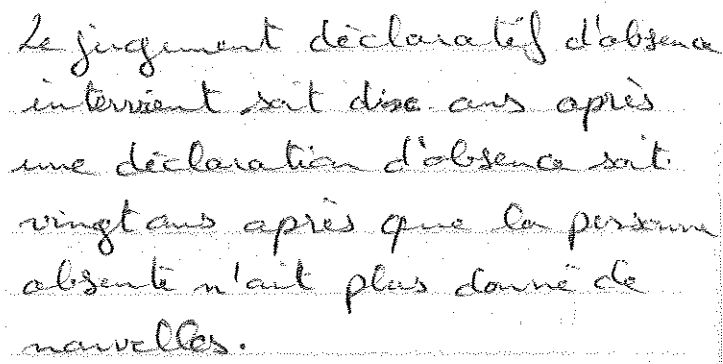 Le jugement déclaratif d'absence
intervient soit dix ans après
une déclaration d'absence soit
vingt ans après que la personne
absente n'ait plus donné de
nouvelles.